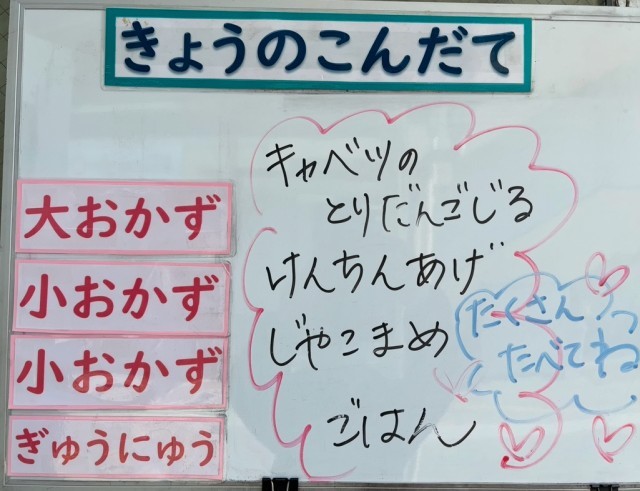 きょうのこんだて
大おかず
キャベツの
とりだんごじる
小おかず
けんちんあげ
小おかず
じゃこまめ
ぎゅうにゅう
ごはん
たくさん
たべてね